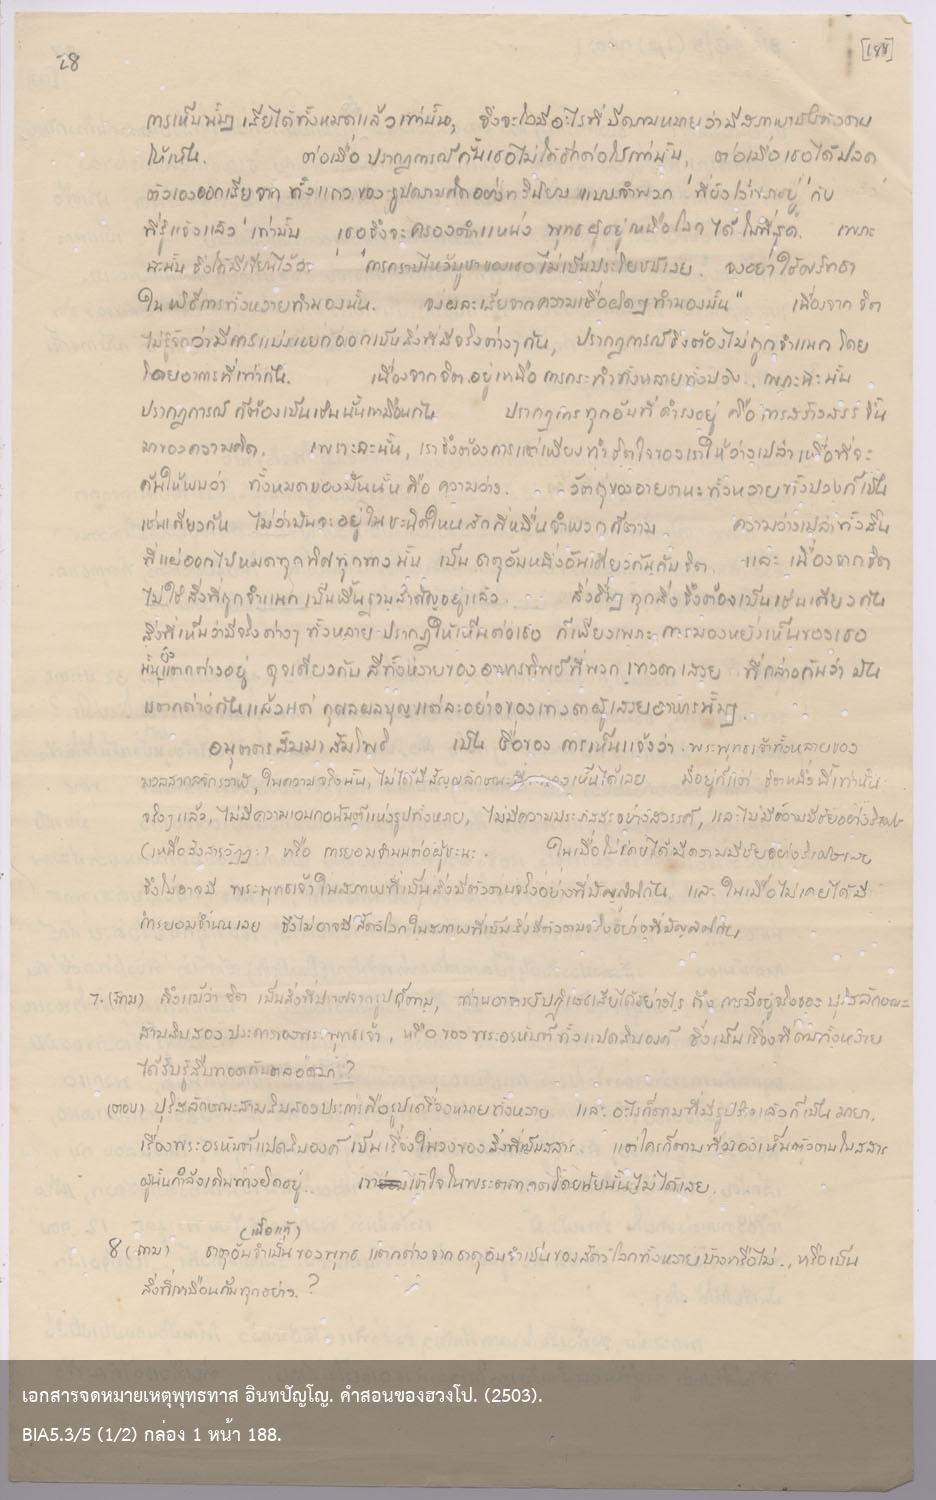 28 [188]
การเห็นนั้นๆ เสียได้ทั้งหมดแล้วเท่านั้น, จึงจะไม่มีอะไรที่มีความหมายว่ามี
ให้เห็น. ต่อเมื่อ ปรากฏการณ์ ไม่ได้ เท่านั้น, ต่อเมื่อเธอได้ปลด
ตัวเองออกเสียจาก ทั้งแถวของรูปความคิดอย่างทวินิยม แบบจำพวก "ที่ยังโง่เขลาอยู่" กับ
ที่รู้แจ้งแล้ว' เท่านั้น เธอจึงจะครองตำแหน่ง พุทธะผู้อยู่เหนือโลก ได้ในที่สุด. เพราะ
ฉะนั้น จึงได้มีเขียนไว้ว่า "การกราบไหว้บูชาของเธอไม่เป็นประโยชน์เลย. จงอย่าได้
ในพิธีการทั้งหลายทำนองนั้น. จงผละเสียจากความเชื่อผิดๆ ทำนองนั้น" เนื่องจาก จิต
ไม่รู้จักว่ามีการแบ่งแยกออกเป็นสิ่งที่มีจริงต่างๆ กัน, ปรากฏการณ์จึงต้องไม่ถูกจำแนก โดย
โดยอาการที่เท่ากัน. เนื่องจากจิต อยู่เหนือ การกระทำทั้งหลายทั้งปวง, เพราะฉะนั้น
ปรากฏการณ์ ก็ต้องเป็นเช่นนั้นเหมือนกัน ปรากฏการทุกอันที่ดำรงอยู่ คือ การสร้างสรรค์ขึ้น
มาของความคิด. เพราะฉะนั้น, เราจึงต้องการแต่เพียงทำจิตใจของเราให้ว่างเปล่า เพื่อที่จะ
ค้นให้พบว่า ทั้งหมดของมันนั้น คือ ความว่าง. วัตถุของอายตนะทั้งหลายทั้งปวงก็เป็น
เช่นเดียวกัน ไม่ว่ามันจะอยู่ในชนิดไหนสักกี่หมื่นจำพวกก็ตาม ความว่างเปล่าทั้งสิ้น
ที่แผ่ออกไปหมดทุกทิศทุกทางนั้น เป็น ธาตุอันหนึ่งอันเดียวกันกับจิต. และ เนื่องจากจิต
ไม่ใช่สิ่งที่ถูกจำแนก เป็น อยู่แล้ว. สิ่งอื่นๆ ทุกสิ่ง จึงต้องเป็นเช่นเดียวกัน
สิ่งที่เห็นว่ามีจริงต่างๆ ทั้งหลาย ปรากฏให้เห็นต่อเธอ ก็เพียงเพราะ การมองหยั่งเห็นของเธอ
นั้นยังแตกต่างอยู่ ดุจเดียวกับ สีทั้งหลายของอาหารทิพย์ที่พวกเทวดาเสวย ที่กล่าวกันว่า มัน
แตกต่างกันแล้วแต่ กุศลผลบุญแต่ละอย่างของเทวดาผู้เสวยอาหารนั้นๆ.
อนุตตรสัมมาสัมโพธิ เป็น ชื่อของ การเห็นแจ้งว่า พระพุทธเจ้าทั้งหลายของ
มวลสากลจักรวาฬ, ในความจริงนั้น, ไม่ได้มีสัญญลักษณะ มองเห็นได้เลย มีอยู่ก็แต่ จิตหนึ่งนี้เท่านั้น
จริงๆ แล้ว, ไม่มีความเอนกอนันต์แห่งรูปทั้งหลาย, ไม่มีความประภัสสรอย่างสวรรค์, และไม่มีความมีชัยอย่าง
(เหนือสังสารวัฏฏะ) หรือ การยอมจำนนต่อผู้ชนะ. ในเมื่อไม่เคยได้มีความมีชัยอย่าง
จึงไม่อาจมี พระพุทธเจ้า ในสภาพที่เป็นสิ่งมีตัวตนจริงอย่างที่บัญญัติกัน และ ในเมื่อไม่เคยได้มี
การยอมจำนนเลย จึงไม่อาจมีสัตว์โลกในสภาพที่เป็นสิ่งมีตัวตนจริงอย่างที่บัญญัติกัน
7. (ถาม) ถึงแม้ว่า จิต เป็นสิ่งที่ปราศจากรูปก็ตาม, ท่านอาจจะปฏิเสธเสียได้อย่างไร ถึง การมีอยู่จริงของ บุริสลักษณะ
สามสิบสองประการของพระพุทธเจ้า, หรือ ของพระอรหันต์ทั้งแปดสิบองค์ ซึ่งเป็นเรื่องที่คนทั้งหลาย
ได้รับรู้สืบทอดกันตลอดมา ?
(ตอบ) บุริสลักษณะสามสิบสองประการคือรูปเครื่องหมายทั้งหลาย และ อะไรก็ตามที่มีรูปร่างแล้วก็เป็น มายา.
เรื่องพระอรหันต์แปดสิบองค์ เป็นเรื่องในวงของสิ่งที่เป็นสสาร แต่ใครก็ตามที่มองเห็นตัวตนในสสาร
ผู้นั้นกำลังเดินทางผิดอยู่. เขาเข้าใจในพระตถาคตโดยนัยนั้นไม่ได้เลย.
(เนื้อแท้)
8 (ถาม) ธาตุอันจำเป็น ของพุทธะ แตกต่างจาก ธาตุอันจำเป็นของสัตว์โลกทั้งหลายบ้างหรือไม่., หรือเป็น
สิ่งที่เหมือนกันทุกอย่าง. ?
เอกสารจดหมายเหตุพุทธทาส อินทปัญโญ. คำสอนของฮวงโป. (2503).
BIA5.3/5 (1/2) กล่อง 1 หน้า 188.